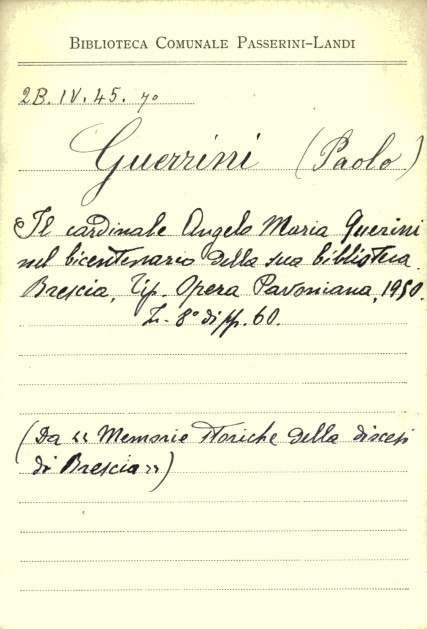 BIBLIOTECA COMUNALE PASSERINI-LANDI
2B. IV. 45. 7º
Guerrini (Paolo)
Il cardinale Angelo Maria Querini
nel bicentenario della sua biblioteca.
Brescia, Tip. Opera Pavoniana, 1950.
in 8° di pp. 60.
(Da << Memorie storiche della diocesi
di Brescia >>)